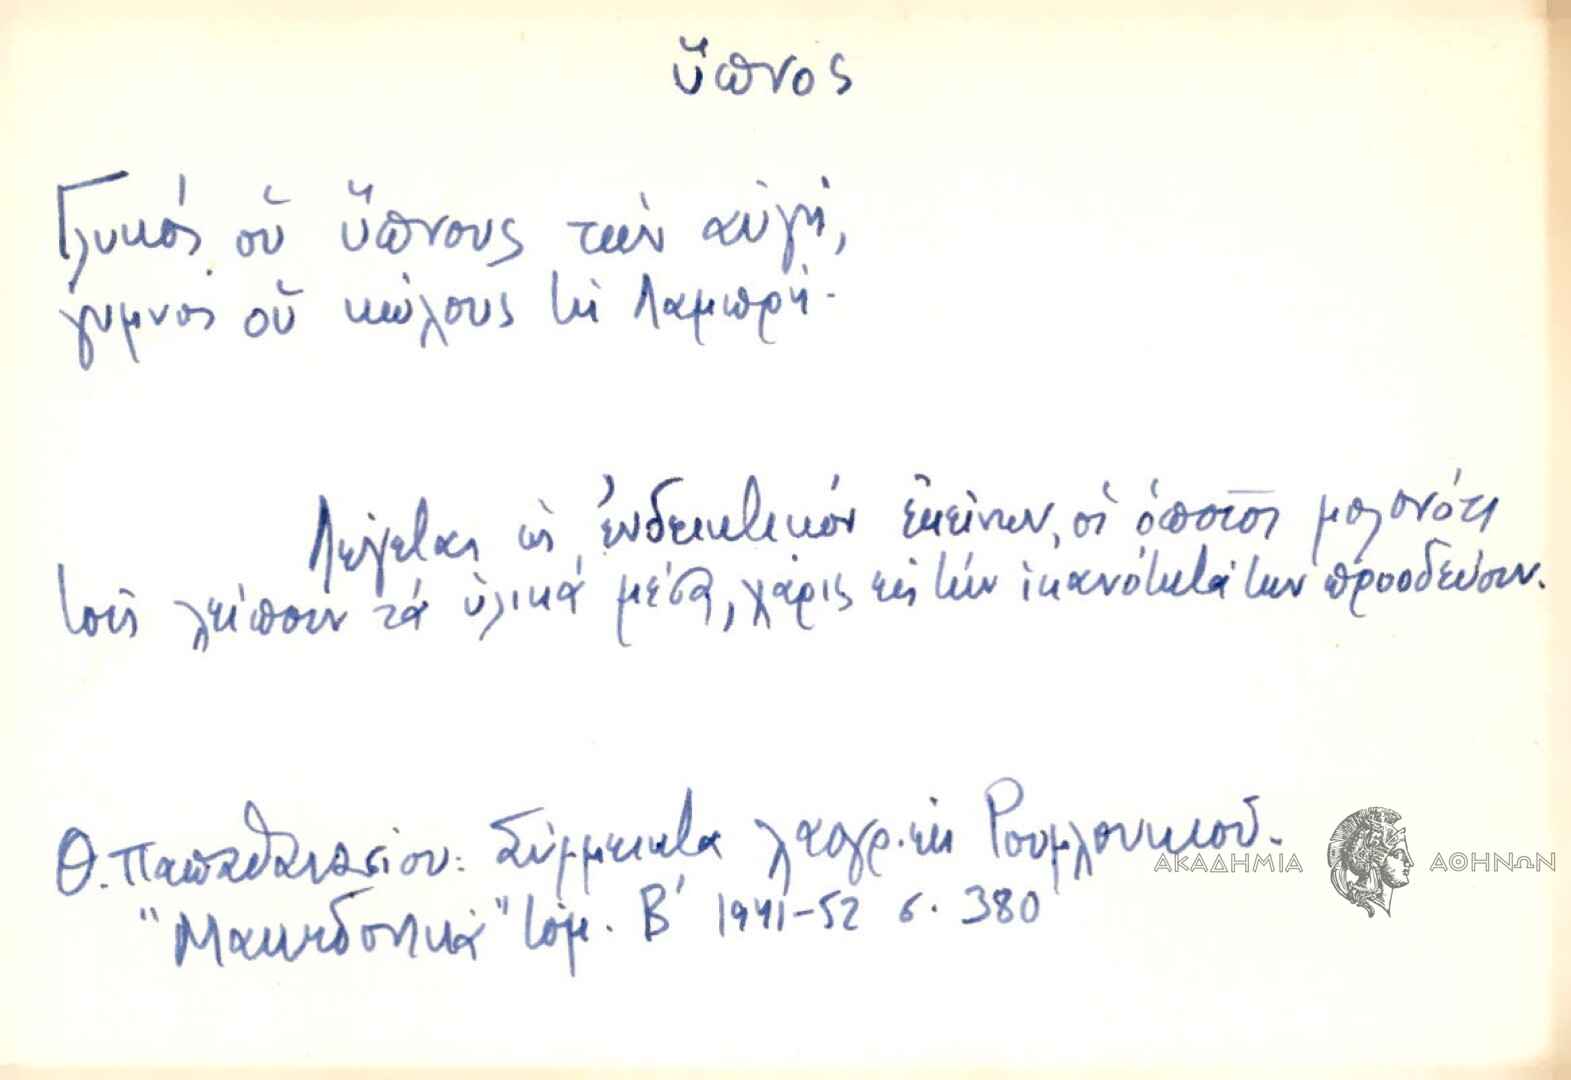 ὕπνος
Γλυκός οὑ ὕπνους τὴν αὐγή,
γυμνός οὑ κώλους τὴ Λαμπρή.
Λέγεται ὡς ἐνδεικτικόν ἐκείνων, οἱ ὁποῖοι μολονότι
τούς λείπουν τά ὑλικά μέσα, χάρις εἰς τήν ἱκανότητά των προοδεύουν.
Θ. Παπαθανασίου: Σύμμεικτα λαογρ. ἐκ Ρουμλουκιοῦ.
"Μακεδονικά" τόμ. Β' 1941-52 σ. 380
ΑΚΑΔΗΜΙΑ ΑΘΗΝΩΝ